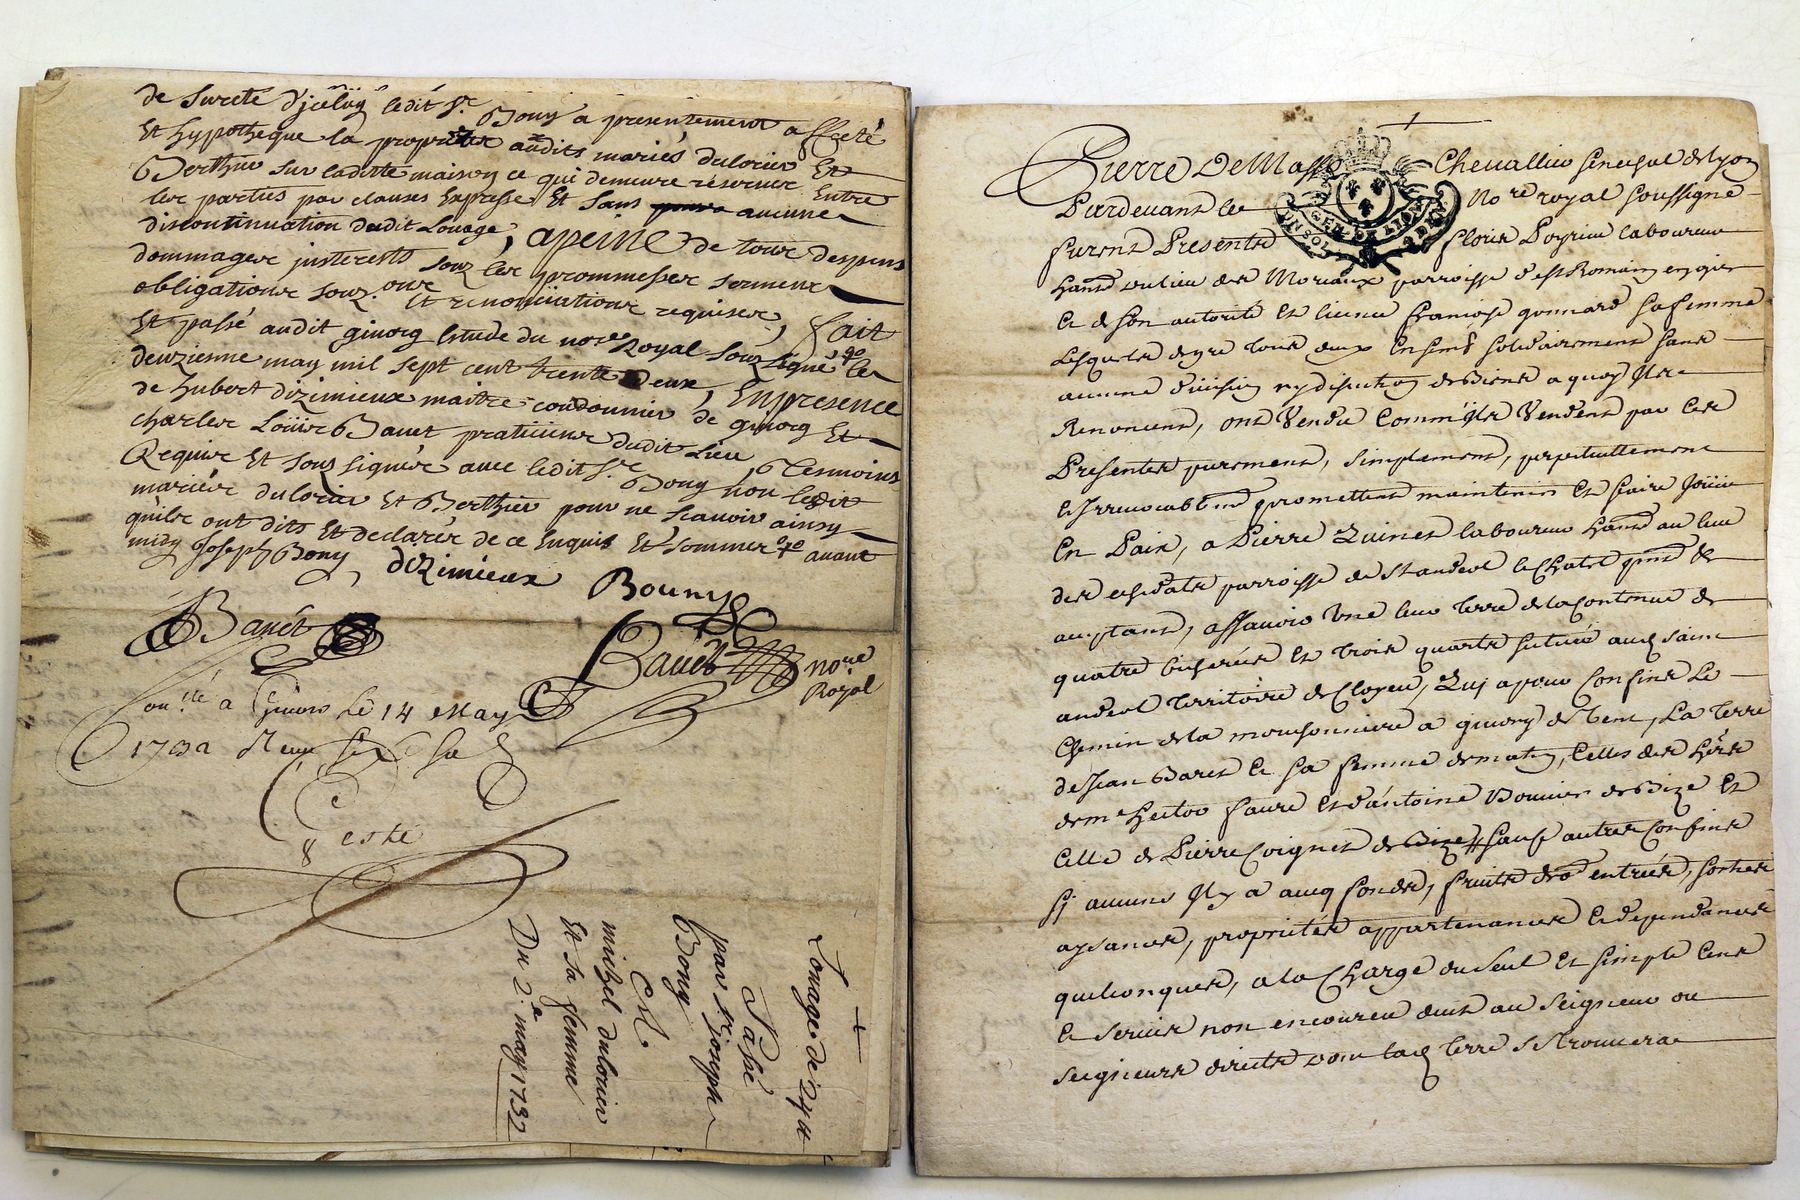 de sureté d'jceluy ledit Sr. Bony a presentement affecté
Et hypotheque la proprieté audits mariés dulorier Et
Berthier sur laditte maison ce qui demeure réservué Entre
les parties par clauses Expresse Et sans aucune
discontinuation dudit Louage, apeine de tous despens
dommages jnterests souz les prommesses serment
obligations souz. Et renonciations requises, fait
Et passé audit givorg Estude du nore Royal souz signé le
deuzienne may mil sept cent trente Deux, En presence
de hubert dizimieux maitre cordonnier de givorg Et
charles Loüis Banet praticiens dudit Lieu, Tesmoins
Requis Et souz signés avec ledit Sr. Bony non lesdit
mariés dulorier Et Berthier pour ne scavoir ainsy
quils ont dits Et declarés de ce Enquis Et sommés avant
midy Joseph Bony
dizimieux Bouny
Banet
Bauet nore
Royal
a Givors Le 14 May
1732
Louage de
Passé
par Sr. Joseph
Bony
michel dulorier
Et sa femme
Du 2e may 1732
Pierre De Masso Chevallier senechal de lyon
Pardevant le Nore royal soussigné
GEN. DE LYON
furent Presents floris Poyrieu laboureur
habtt au lieu des Moriaux parroisse de st Romain en gier
Et de son autorité Et licence françoise gonnard sa femme
Lesquels de gre tous deux Ensemble solidairement sans
aucune division ny discution de Biens a quoy Ils
Renoncent, ont Vendu Comm'Ils Vendent par Ces
Presentes purement, simplement, perpetuellement
et Irrevocablemt promettent maintenir Et faire Joüir
En Paix, a Pierre laboureur habtt au lieu
des parroisse de St andeol le chatel prnt &
acceptant, assavoir Une leur Terre de la Contenue de
quatre bicherées Et Trois quarts scituée aud saint
andeol Territoire de Cloyeu, Quj a pour Confins Le
Chemin de la mouronniere a givors de Vent, La Terre
de Jean Baret Et sa femme de matin, Celles des hers
de me hector faure Et d'antoine Bouvier de Bize Et
Celle de Pierre Coignet de Bize, sauf autres Confins
sj aucuns Il y a avec fonds, fruits droits entrées, sorties
aysances, proprietés appartenances Et dependances
quelconques, a la Charge du seul Et simple Cens
Et servis non encourru deub au seigneur ou
seigneurs directs dont lad Terre se trouvera